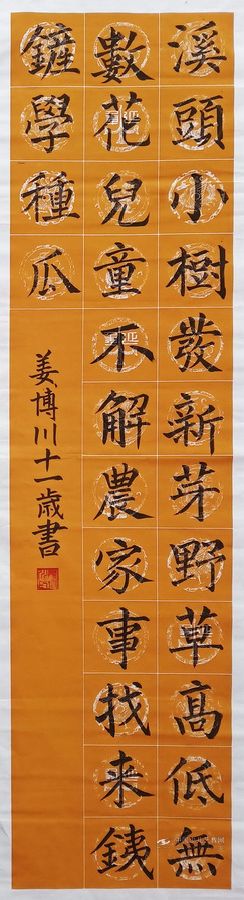 溪頭小樹發新芽野草高低無
數花兒童不解農家事找来鋨
鏟學種瓜
姜博川十一歳書